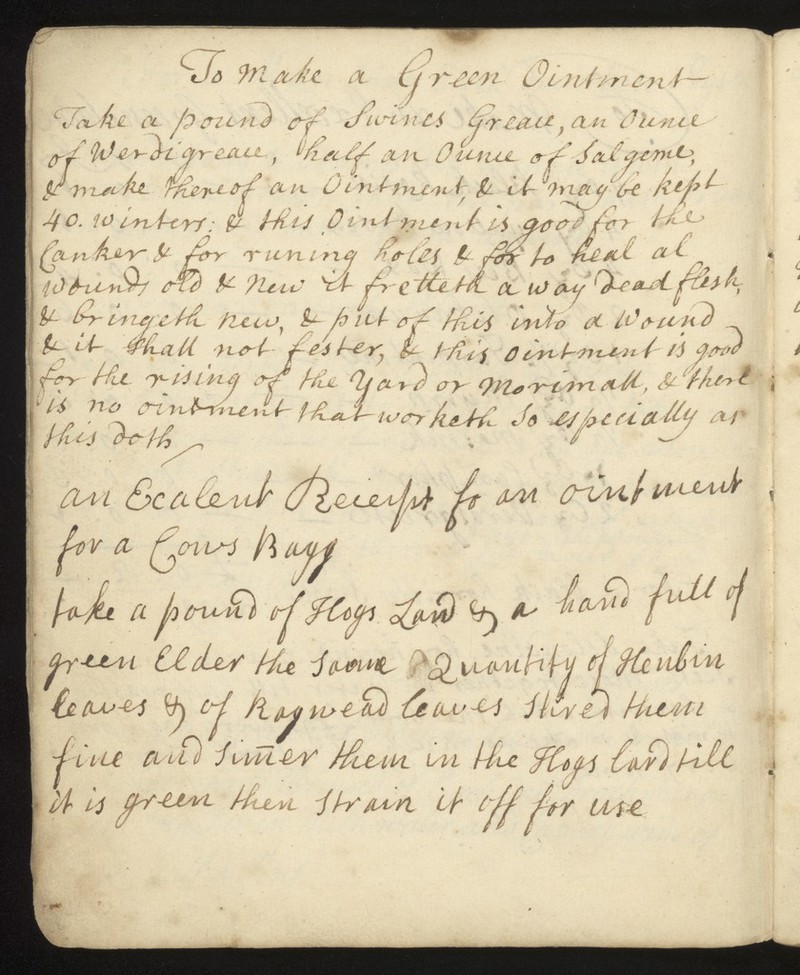 To make a Green Ointment
Take a pound of Swines Greace, an Ounce
of Werdigreace, half an Ounce of Salgeme,
& make thereof an Ointment, & it may be kept
40. winters: & this Ointment is good for the
Canker & for runing holes & for to heal al
wounds old & new it fretteth a way dead flesh,
& bringeth new, & put of this into a Wound
& it shall not fester, & this ointment is good
for the rising of the Yard or Morimall, & there
is no ointment that worketh so especially as
this doth
an Excalent Receipt fo an ointment
for a Cows Bagg
take a pound of Hogs Lard & a hand full of
green Elder the Same Quantity of Henbin
leaves & of Ragwead leaves Shred them
fine and Sim̅er them in the Hogs lard till
it is green then Strain it off for use